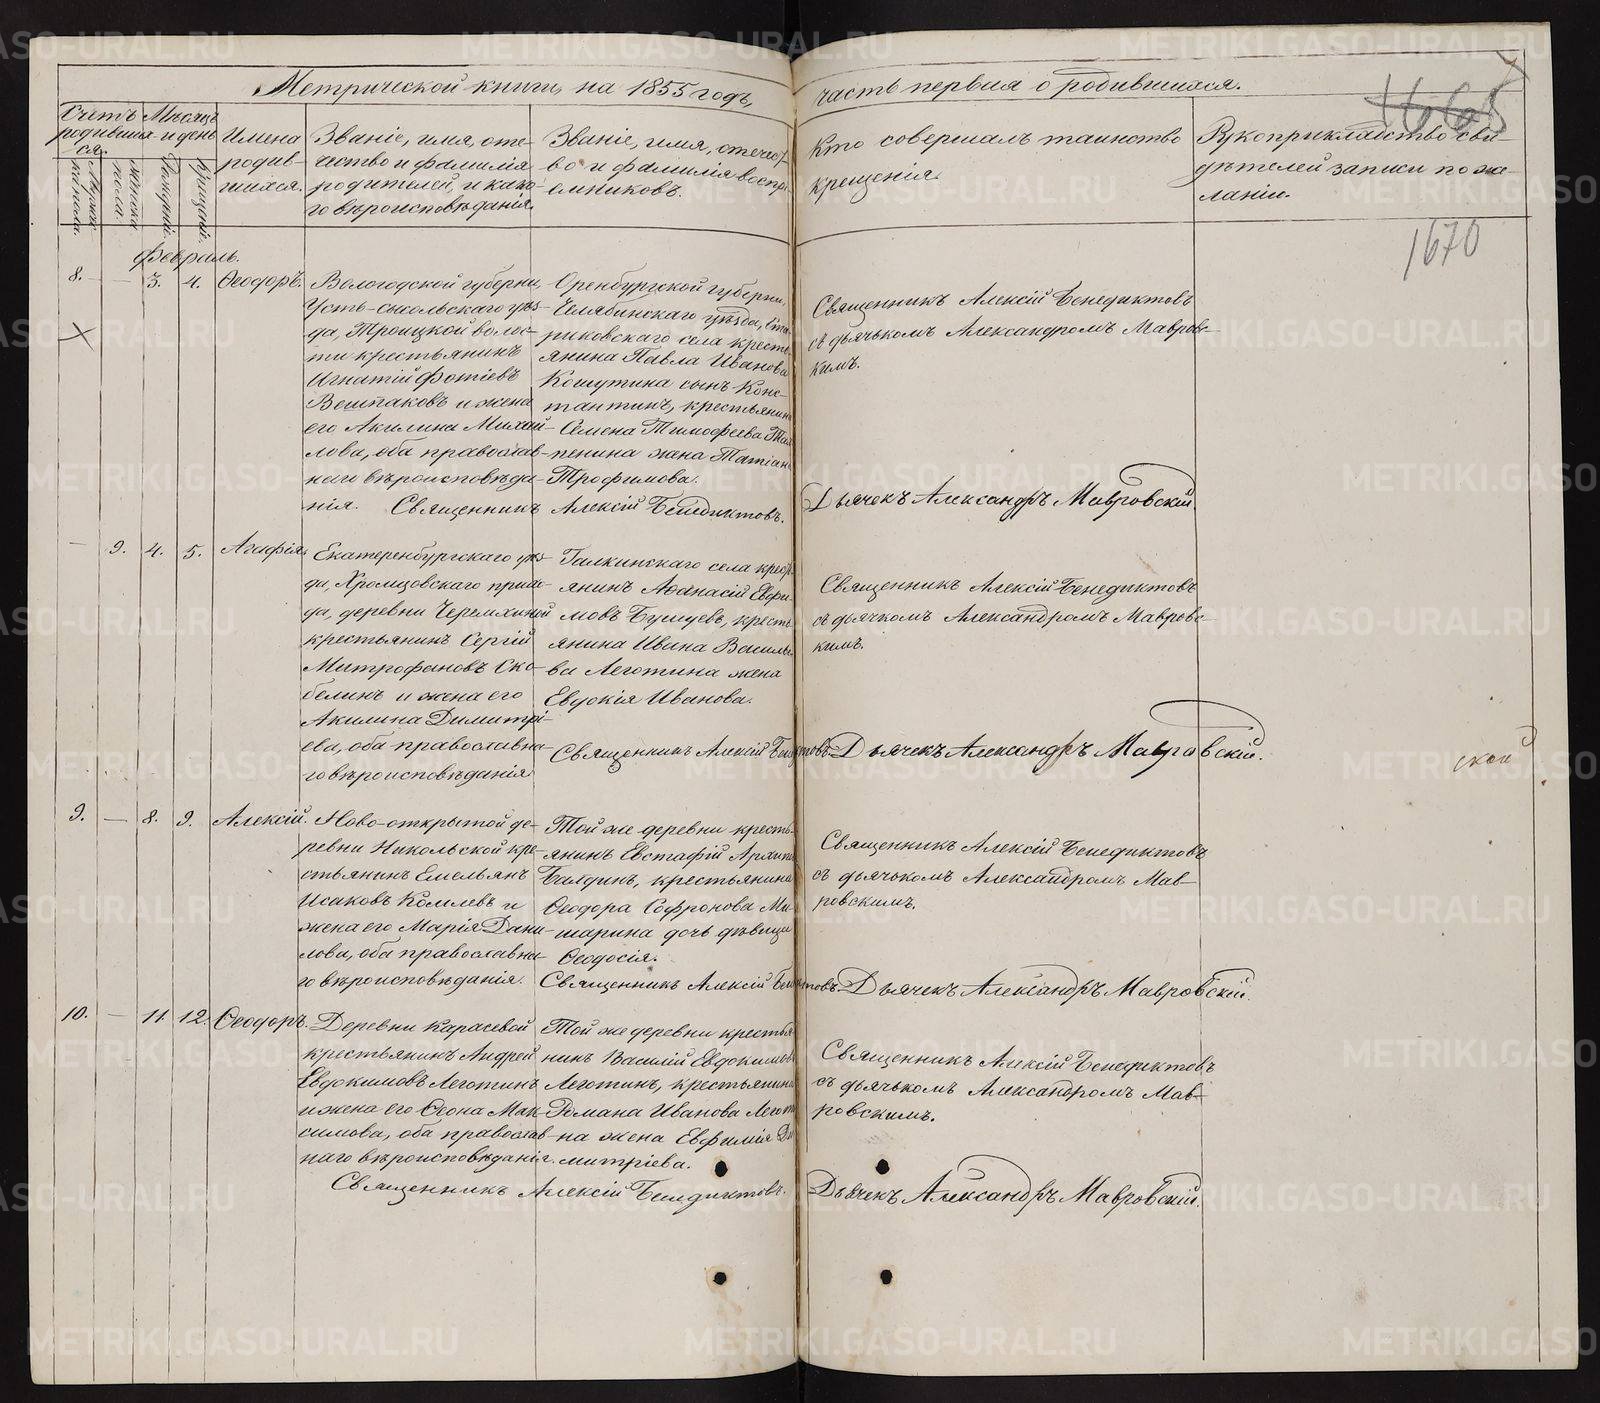 Метрической книги, на 1855 годъ,
часть первая о родившихся.
Счетъ родившихся.
Мѣсяцъ и день
Имена родив-
шихся.
Званіе, имя, оте-
чество и фамилія
родителей, и како-
го вѣроисповѣданія.
Званіе, имя, отечест-
во и фамилія воспрі-
емниковъ.
Кто совершалъ таинство
крещенія.
Рукоприкладство сви-
дѣтелей записи по же-
ланію.
1670
Февраль.
8. — 3. 4. Ѳеодоръ.
Вологодской губерніи,
Усть-сысольскаго уѣз-
да, Троицкой волос-
ти крестьянинъ
Игнатій Фотіевъ
и жена
его Акилина Михай-
лова, оба православ-
наго вѣроисповѣда-
нія.
Оренбургской губерніи,
Челябинскаго уѣзда,
села кресть-
янина Павла Иванова
Кошутина сынъ Конс-
тантинъ, крестьянина
Семена Тимоѳеева
жена Татіана
Трофимова.
Священникъ Алексій Бенедиктовъ.
Священникъ Алексій Бенедиктовъ
съ дьячькомъ Александромъ Мавровс-
кимъ.
Дьячекъ Александръ Мавровскій.
— 9. 4. 5. Агафія.
Екатеренбургскаго уѣз-
да, Хромцовскаго прихо-
да, деревни Черемхиной
крестьянинъ Сергій
Митрофановъ Ско-
белинъ и жена его
Акилина Димитрі-
ева, оба православна-
го вѣроисповѣданія
Галкинскаго села крест-
янинъ Аѳанасій Евфи-
мовъ кресть-
янина Ивана Василь-
ва Леготина жена
Евдокія Иванова.
Священникъ Алексій Бенедиктовъ.
Священникъ Алексій Бенедиктовъ
съ дьячкомъ Александромъ Мавровс-
кимъ.
Дьячекъ Александръ Мавровскій.
ской
9. — 8. 9. Алексій.
Ново-открытой де-
ревни Никольской кре-
стьянинъ Емельянъ
Исаковъ Комлевъ и
жена его Марія Дани-
лова, оба православна-
го вѣроисповѣданія.
Той же деревни кресть-
янинъ Евстафій Архипо
Балдинъ, крестьянина
Ѳеодора Софронова Ми-
шарина дочь дѣвица
Ѳеодосія.
Священникъ Алексій Бенедиктовъ.
Священникъ Алексій Бенедиктовъ
съ дьячькомъ Александромъ Мав-
ровскимъ.
Дьячекъ Александръ Мавровскій.
10. — 11. 12. Ѳеодоръ.
Деревни Карасевой
крестьянинъ Андрей
Евдокимовъ Леготинъ
и жена его Ѳеона Мак-
симова, оба православ-
наго вѣроисповѣданія.
Той же деревни крестья-
нинъ Василій Евдокимовъ
Леготинъ, крестьянина
Романа Иванова Легот
на жена Евфимія Ди
митріева.
Священникъ Алексій Бенедиктовъ.
Священникъ Алексій Бенедиктовъ
съ дьячькомъ Александромъ Мав-
ровскимъ.
Дьячекъ Александръ Мавровскій.
METRIKI.GASO-URAL.RU